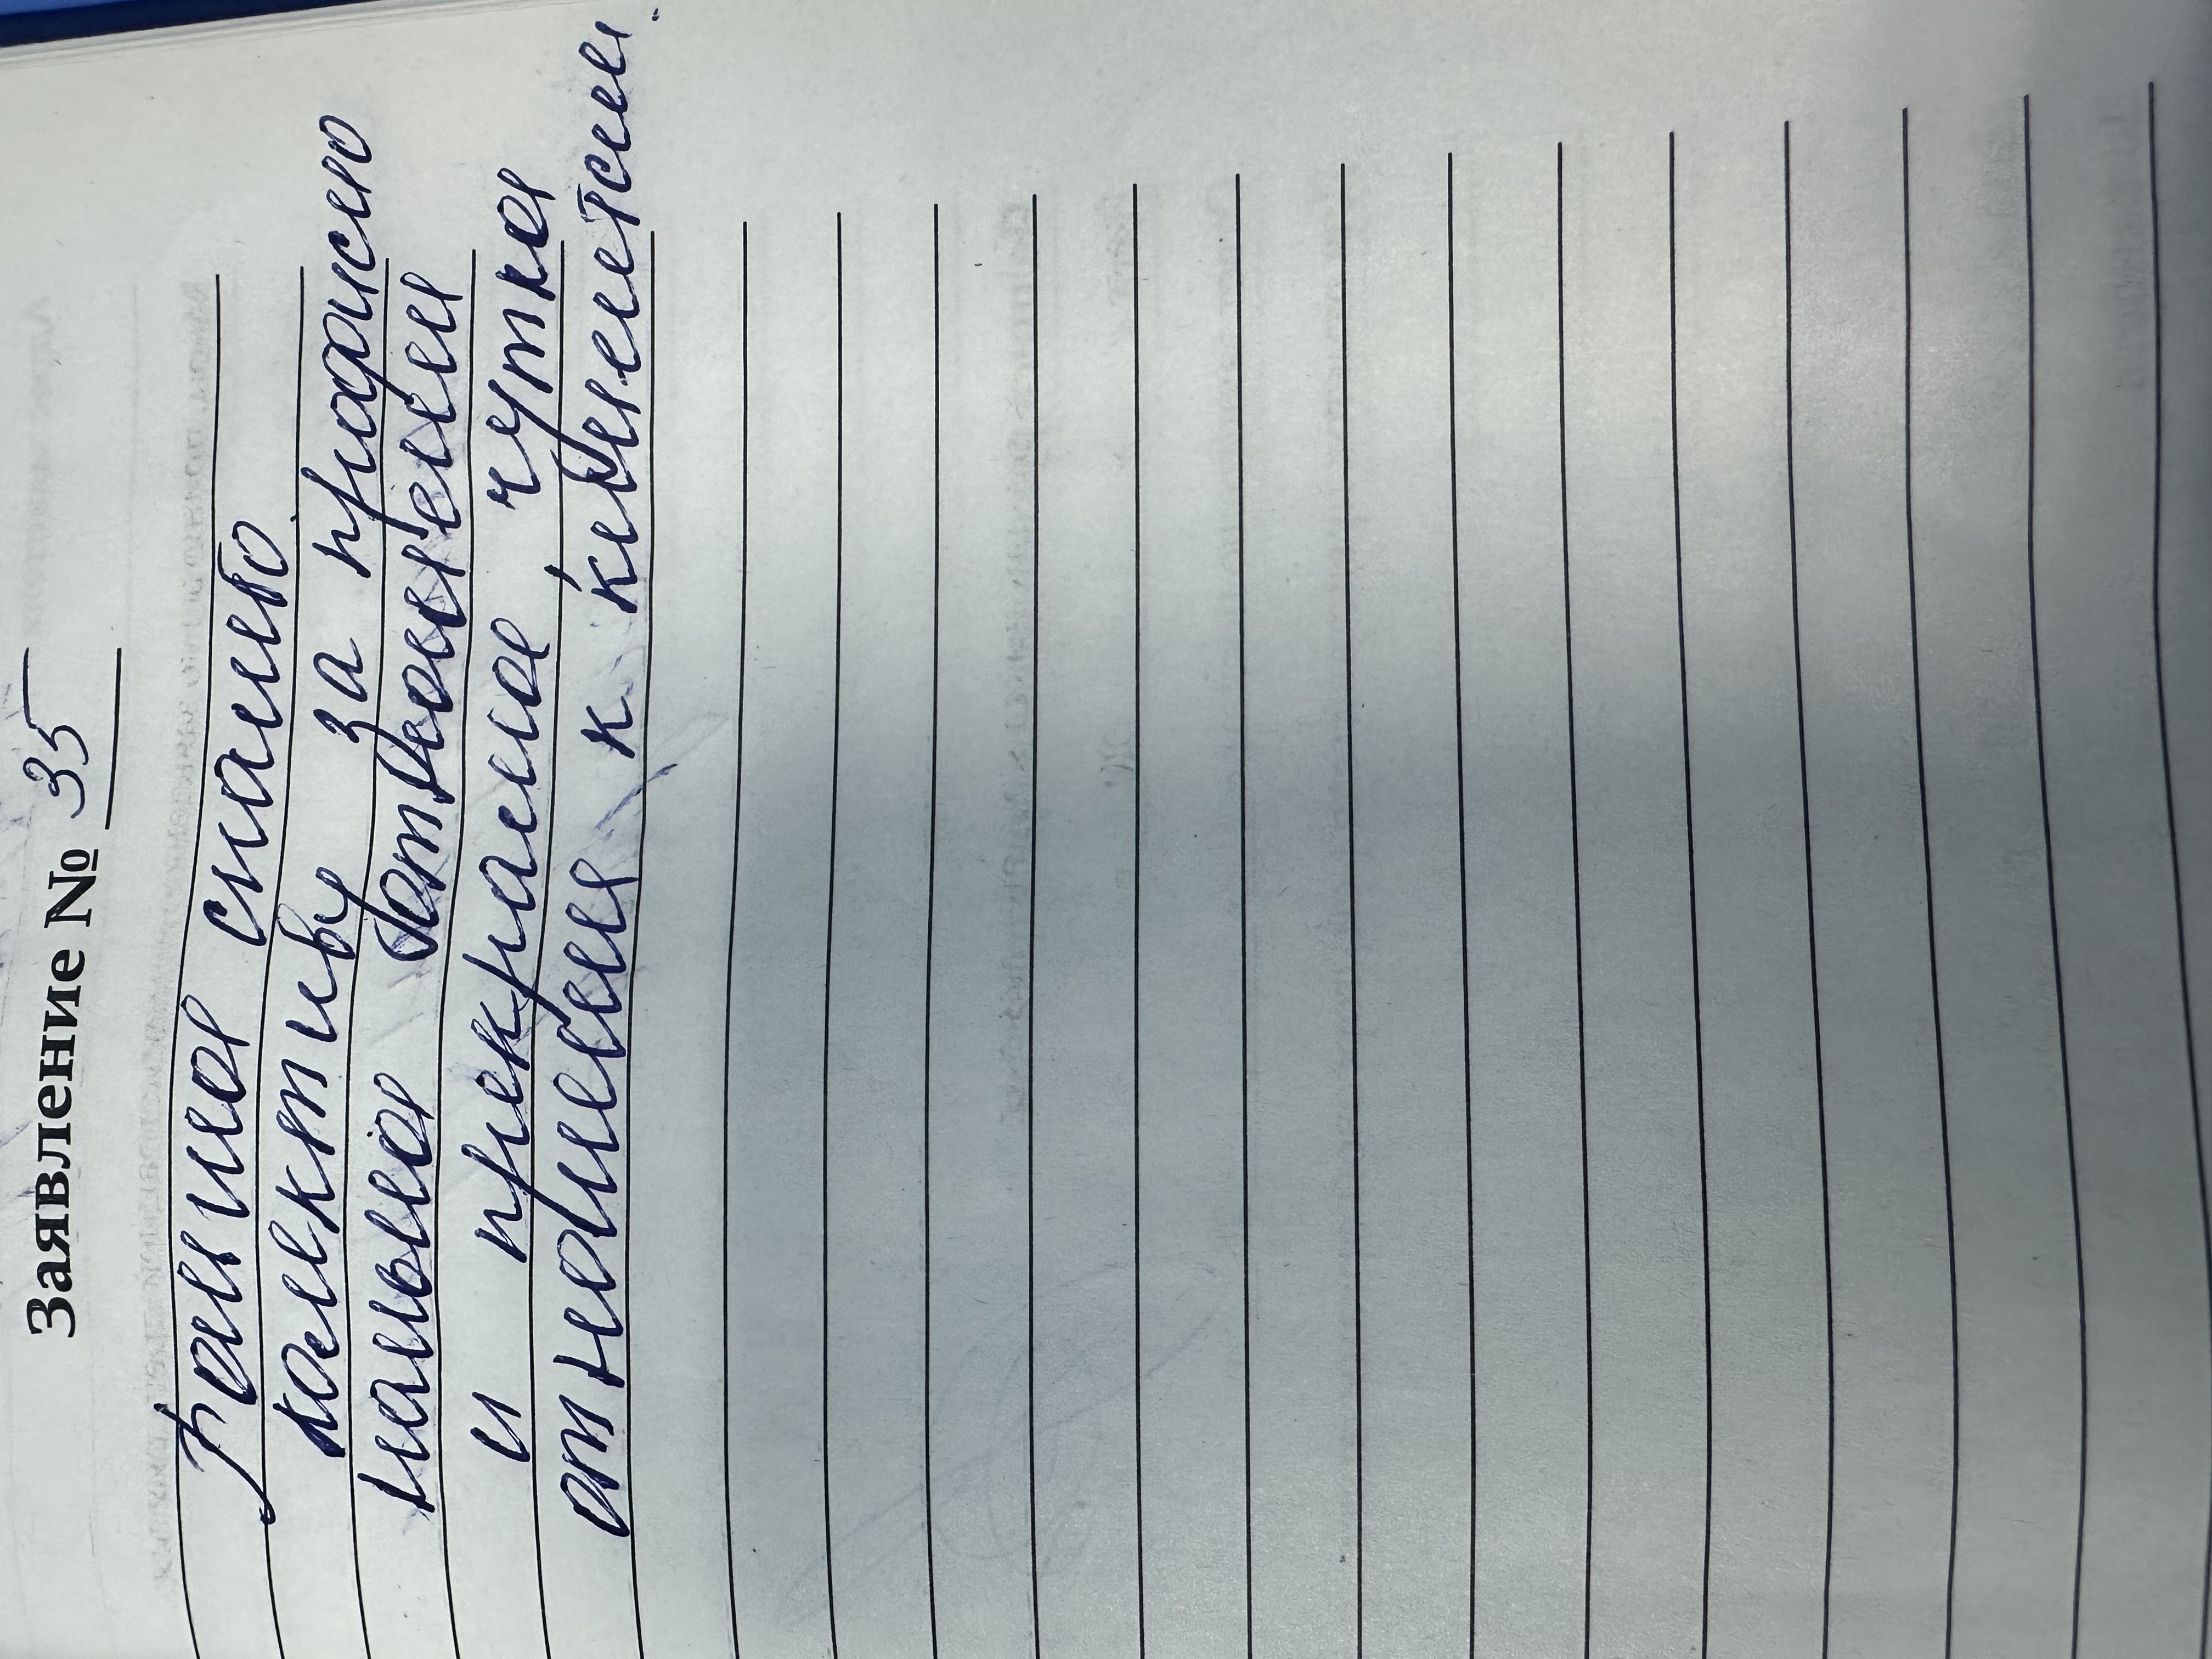 Заявление № 35
Большое спасибо
коллективу за продажно
нальное готовление
и прекрасное чуткое
отношение к клиентам.